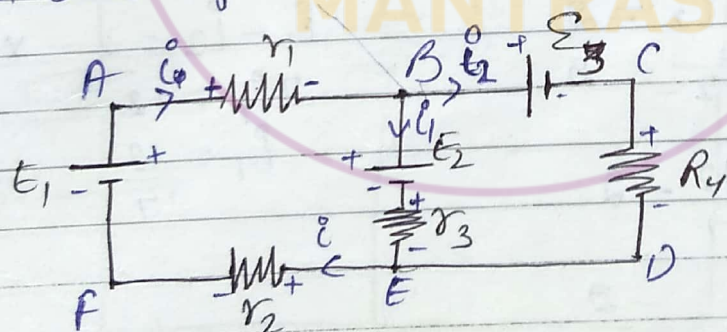 MANTRAS
A i + r₁ - B i₂ + ε₃ - C
i₁
ε₁ + -
+ ε₂ -
+ r₃ -
+ R₄ -
F - r₂ + i E D